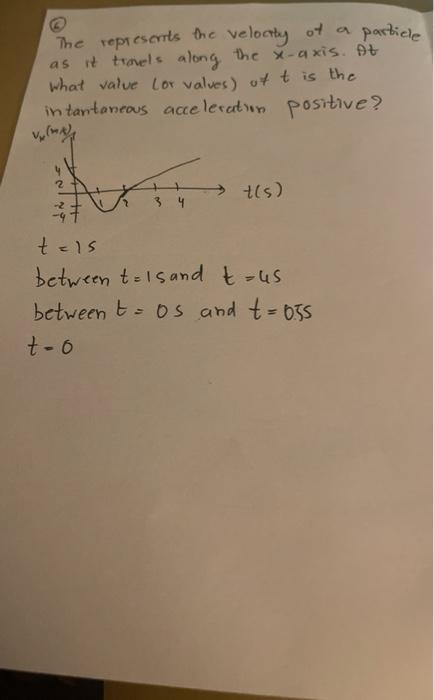 6
The represents the velocity of a particle
as it travels along the x-axis. At
what value (or valves) of t is the
intantaneous acceleration positive?
4
2
1 2 3 4 t(s)
-2
-4
t = 1s
between t = 1s and t = 4s
between t = 0s and
t = 0